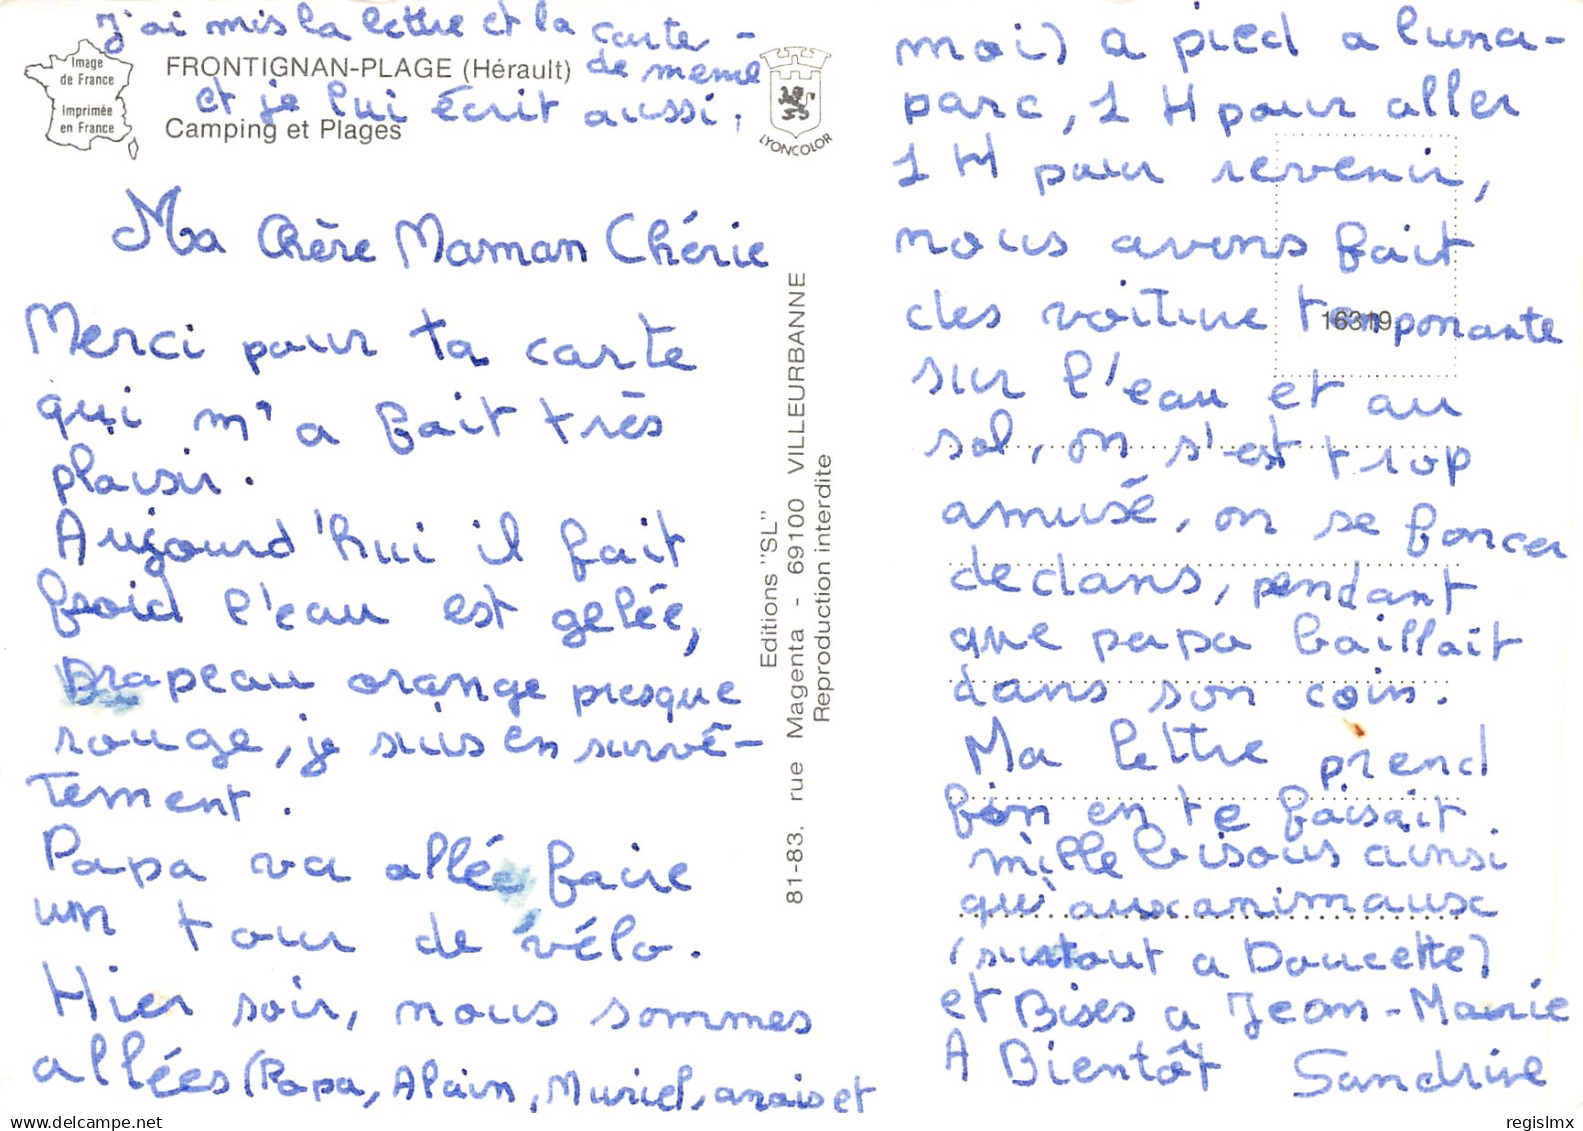 J'ai mis la lettre et la carte -
de meme
et je lui écrit aussi.
Image
de France
Imprimée
en France
FRONTIGNAN-PLAGE (Hérault)
Camping et Plages
LYONCOLOR
Ma Chère Maman Chérie
Merci pour ta carte
qui m'a fait très
plaisir.
Aujourd'hui il fait
froid l'eau est gelée,
Drapeau orange presque
rouge, je suis en survê-
tement.
Papa va allée faire
un tour de vélo.
Hier soir, nous sommes
allées (Papa, Alain, Muriel, anais et
moi) a pied a luna-
parc, 1 H pour aller
1 H pour revenir,
nous avons fait
des voiture tamponante
sur l'eau et au
sol, on s'est trop
amusé, on se foncer
dedans, pendant
que papa baillait
dans son coin.
Ma lettre prend
fin en te faisait
mille bisous ainsi
qui aux animaux
(surtout a Doucette)
et Bises a Jean-Marie
A Bientôt Sandrine
16319
Editions "SL"
81-83, rue Magenta - 69100 VILLEURBANNE
Reproduction interdite
regislmx